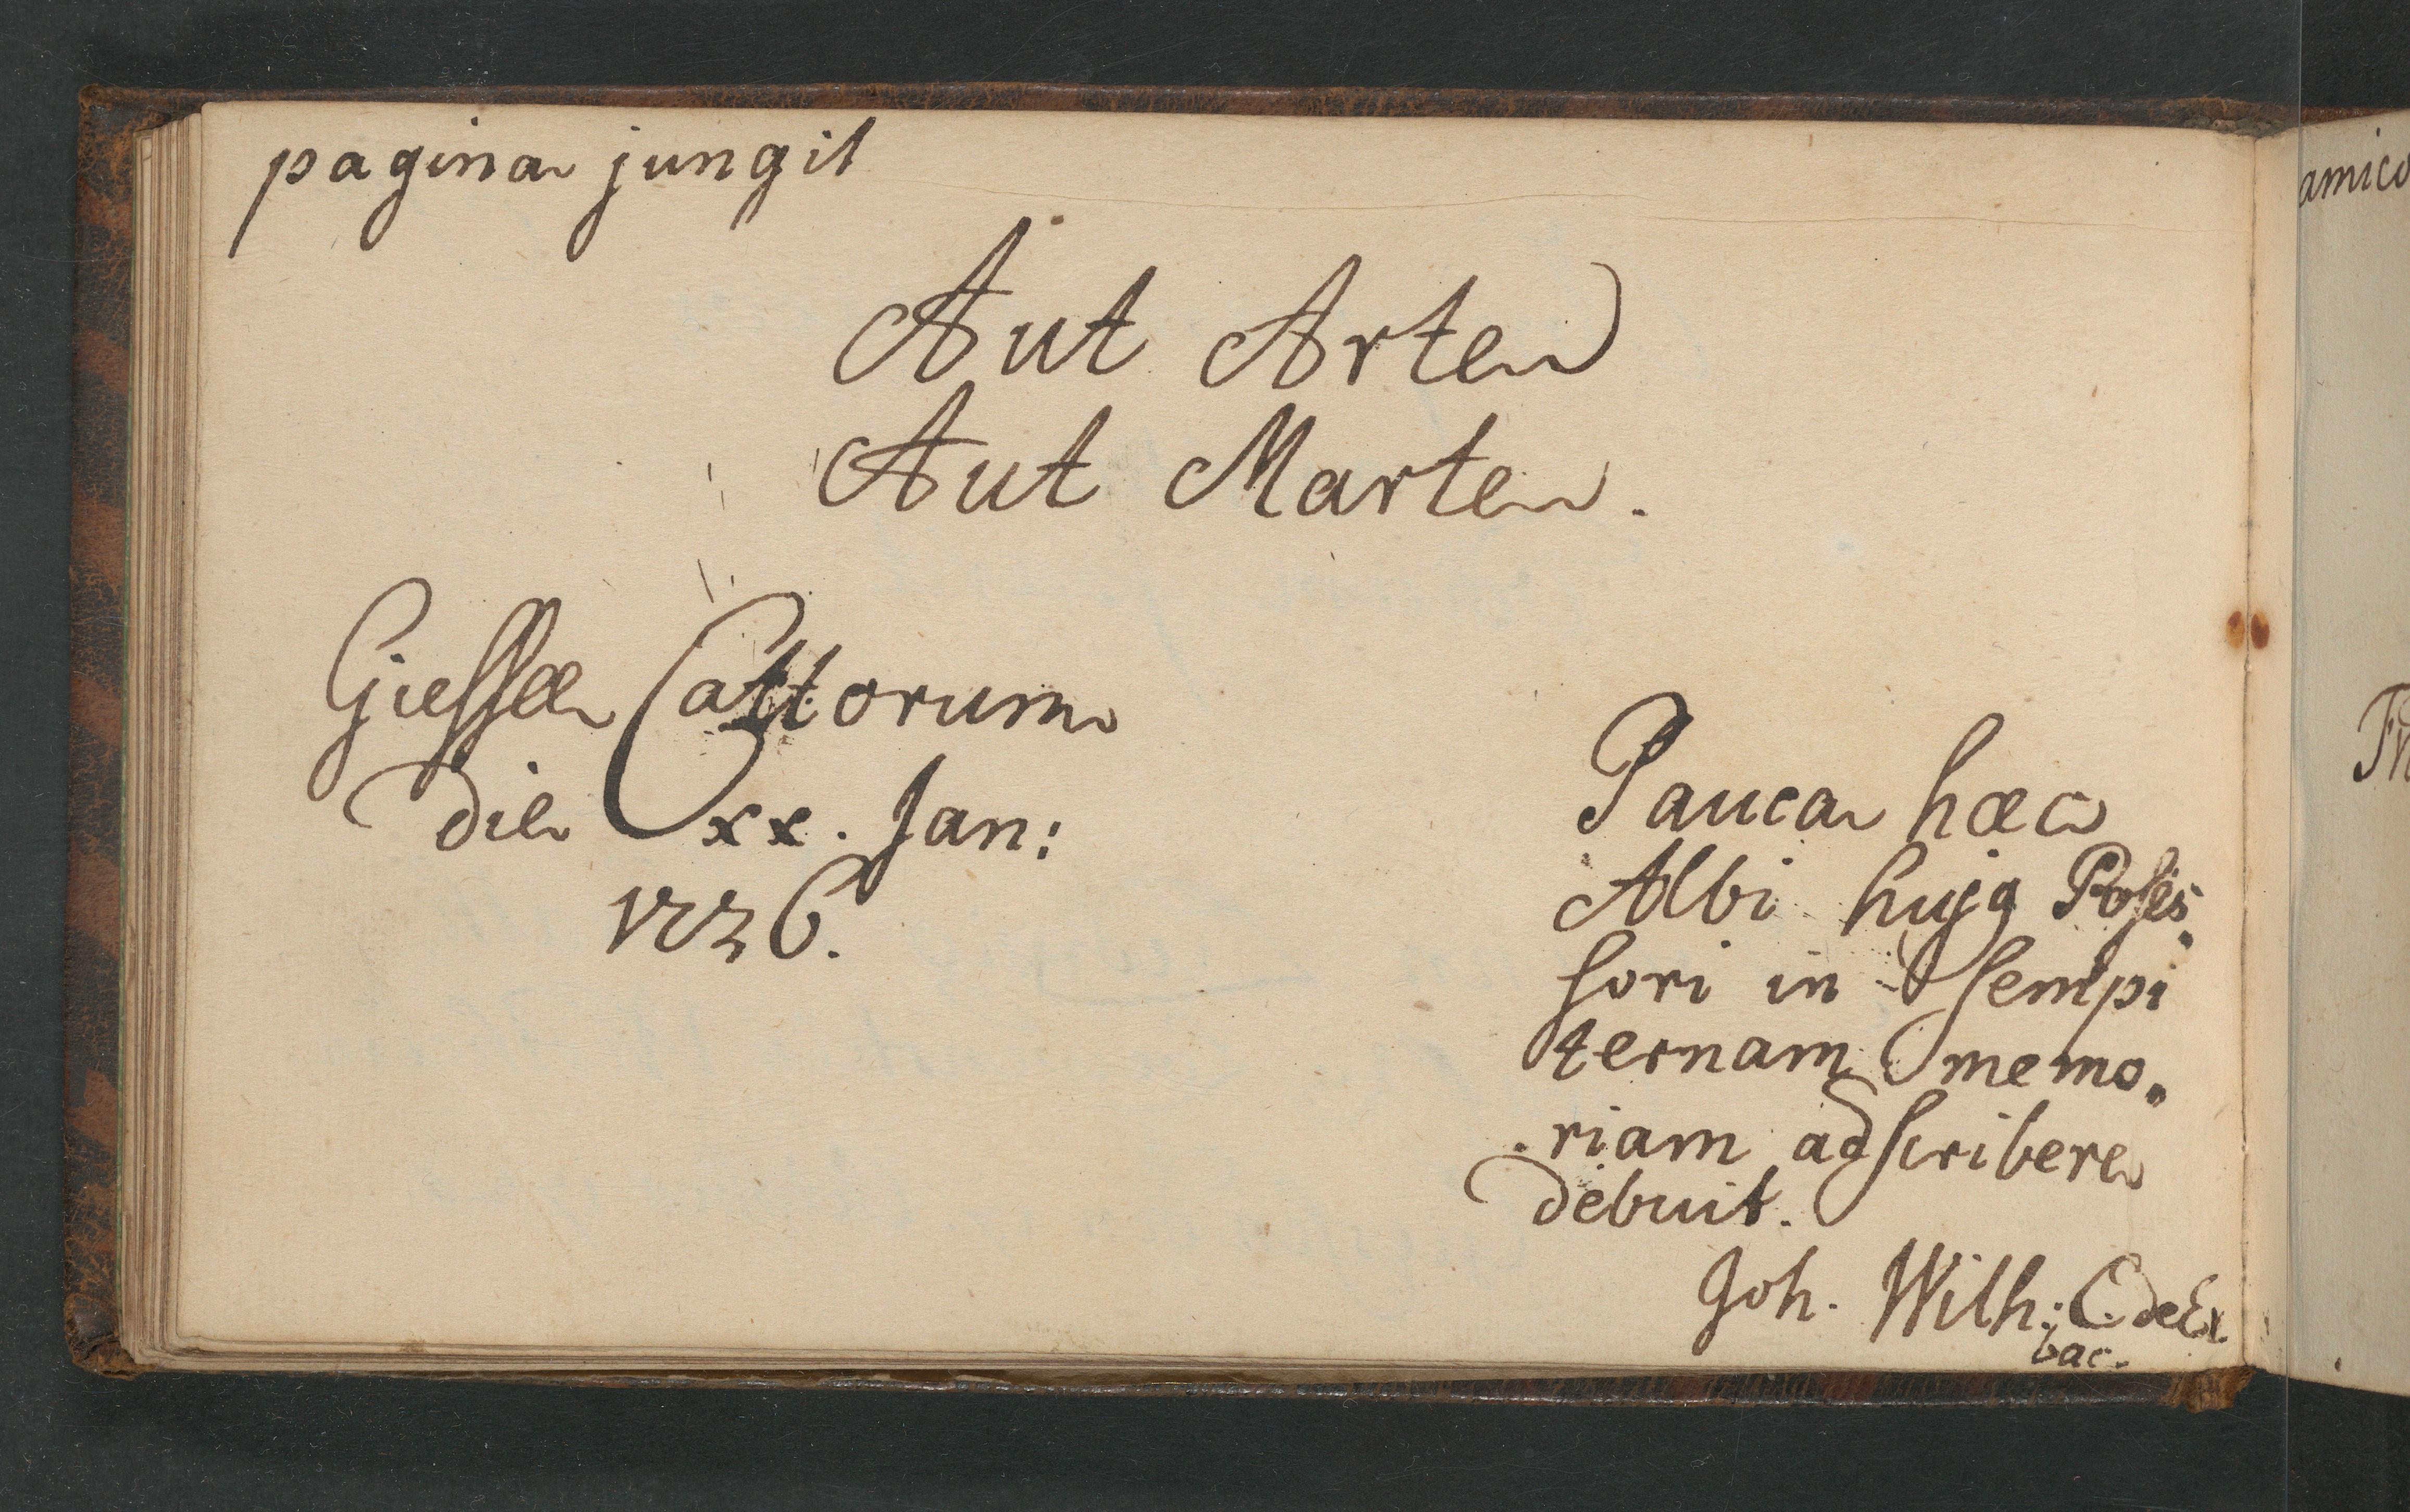 pagina jungit
Aut Arte
Aut Marte.
Giessae Cattorum
die xx. Jan:
1736.
Pauca haec
Albi hujꝰ Posses-
sori in sempi
ternam memo-
riam adscribere
debuit.
Joh. Wilh: C. de
bac.
amico